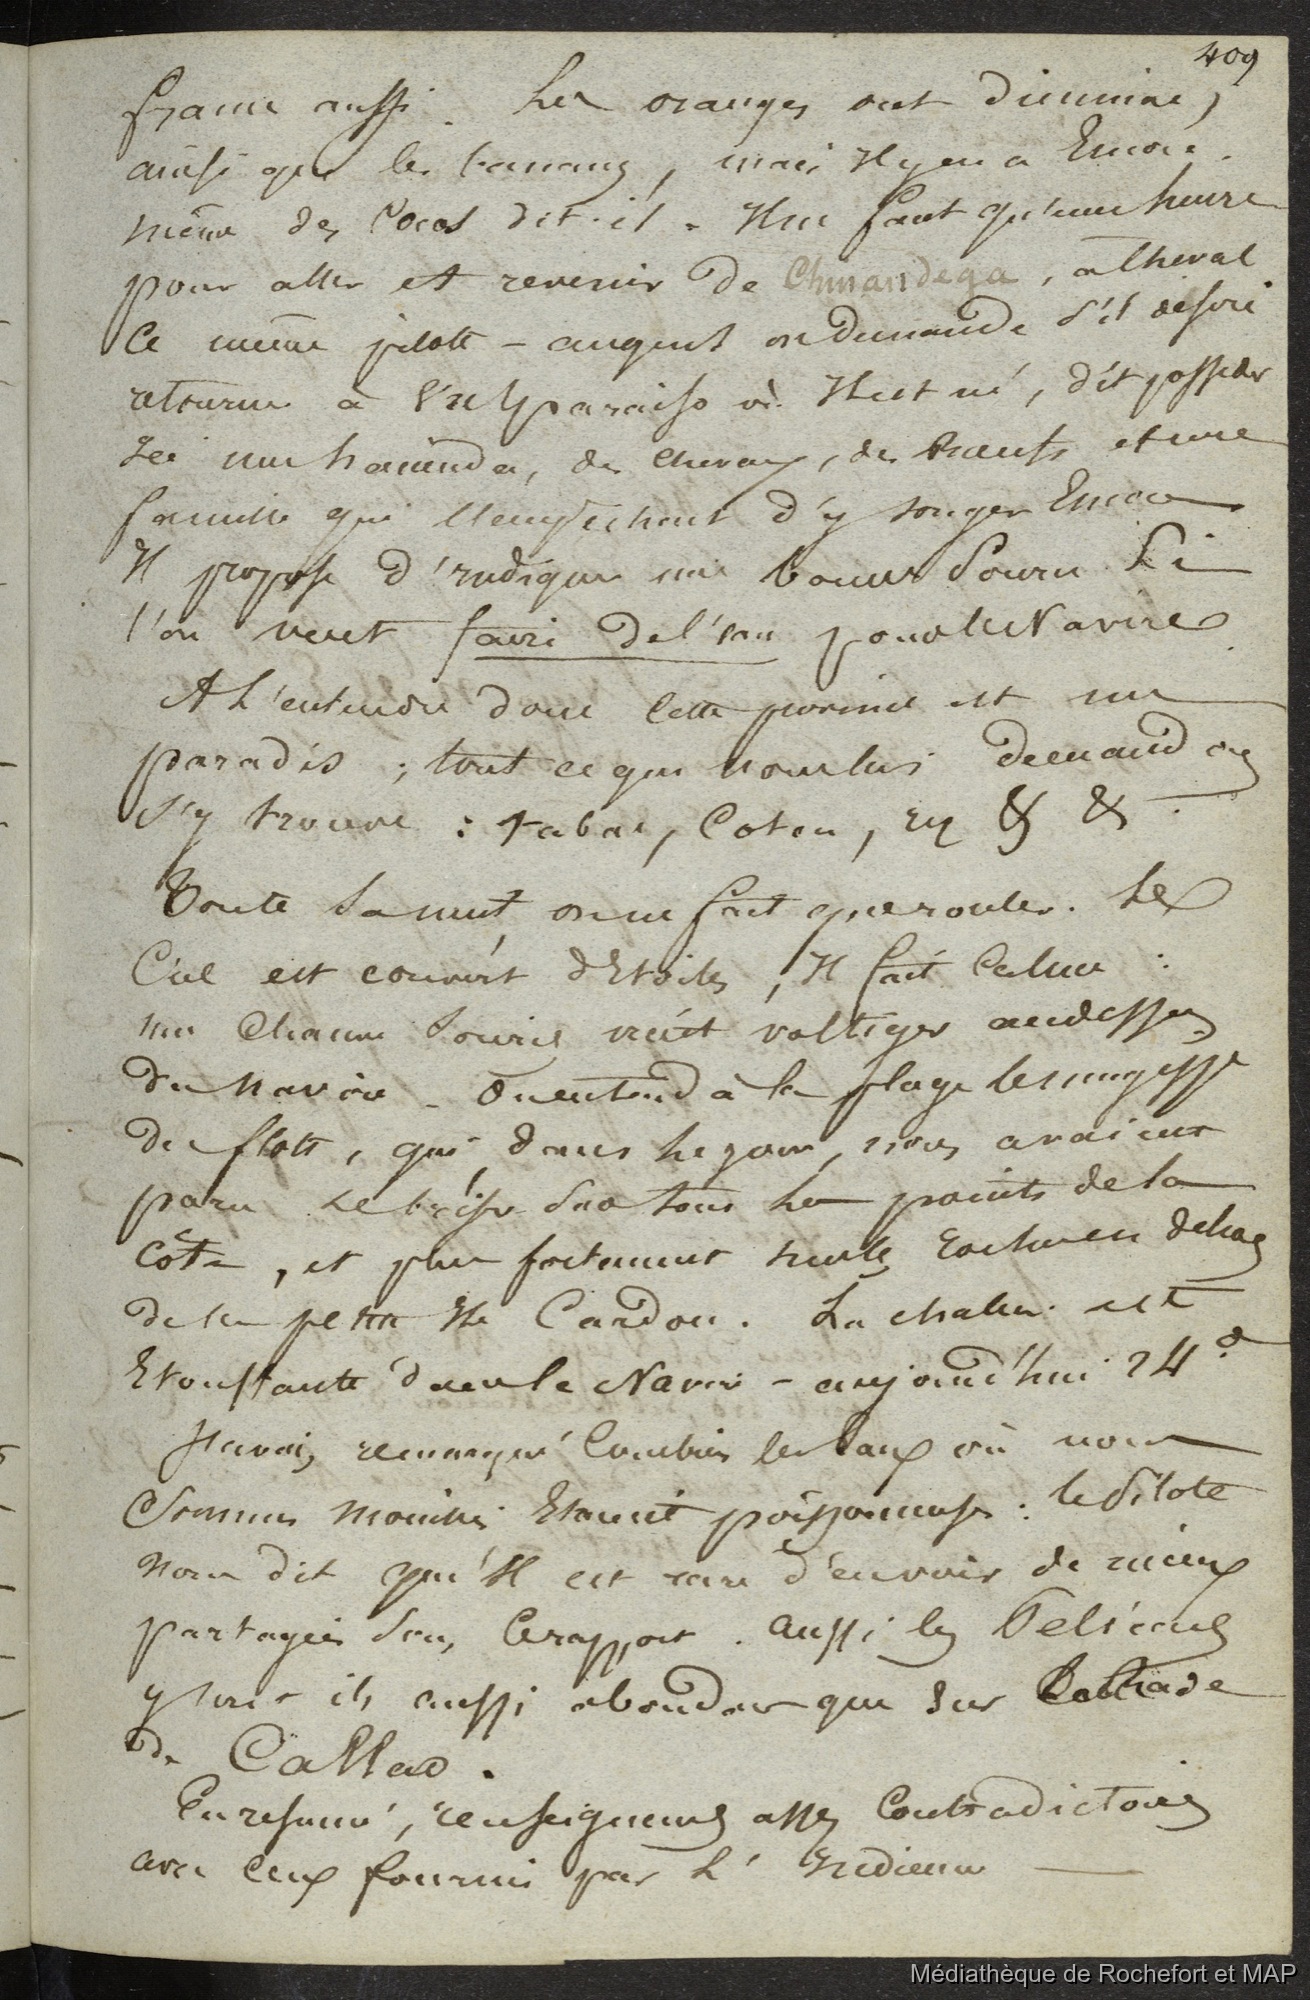 409
franc aussi. Les oranges ont diminué,
ainsi que les bananes, mais Il y en a Encore.
même des Cocos dit-il. Il ne faut qu'une heure
pour aller et revenir de Chinandega, à Cheval
Ce même pilote - auquel on demande s'il desire
retourner à Valparaiso où Il est né, dit posseder
Ici une hacienda, des chevaux, des bœufs et une
famille qui l'empechent d'y songer Encore
Il propose d'indiquer une bonne Source Si
l'on veut faire de l'eau pour le Navire
A L'entendre donc Cette province est un
paradis ; tout ce que nous lui demandons
s'y trouve : tabac, Coton, Riz & &.
Toute la nuit, on ne fait que rouler. Le
Ciel est couvert d'Etoiles, Il fait Calme :
une Chauve Souris vient voltiger audessus
du navire - On entend à la plage le
des flots, qui, dans le jour, nous avaient
paru se briser sur tous les points de la
Côte, et plus fortement sur les Roches en dehors
de la petite Ile Cardon. La chaleur est
Etouffante dans le Navire - aujourd'hui 24°
J'avais remarqué Combien les Eaux où nous
Sommes mouillés Etaient poissonneuses : le Pilote
nous dit qu'Il est rare d'en voir de mieux
partagées sous Ce rapport. Aussi les Pelicans
y sont-ils aussi abondans que sur la Rade
de Callao.
En resumé, renseignemens assez Contradictoires
avec Ceux fournis par L'Indienne —
Médiathèque de Rochefort et MAP